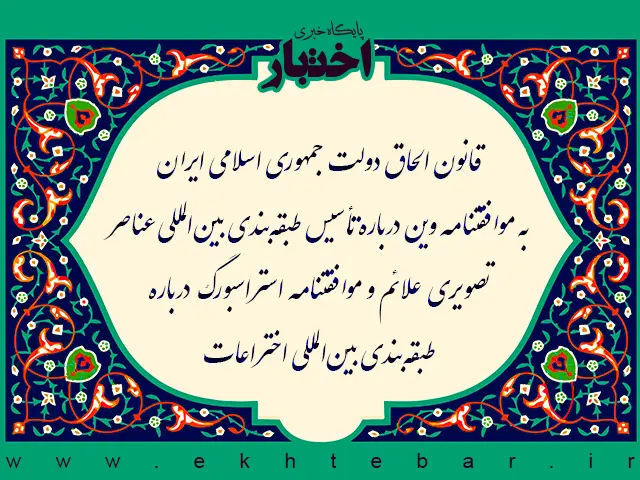 پایگاه خبری
اختبار
قانون الحاق دولت جمهوری اسلامی ایران
به موافقتنامه وین درباره تأسیس طبقه‌بندی بین‌المللی عناصر
تصویری علائم و موافقتنامه استراسبورگ درباره
طبقه‌بندی بین‌المللی اختراعات
www.ekhtebar.ir